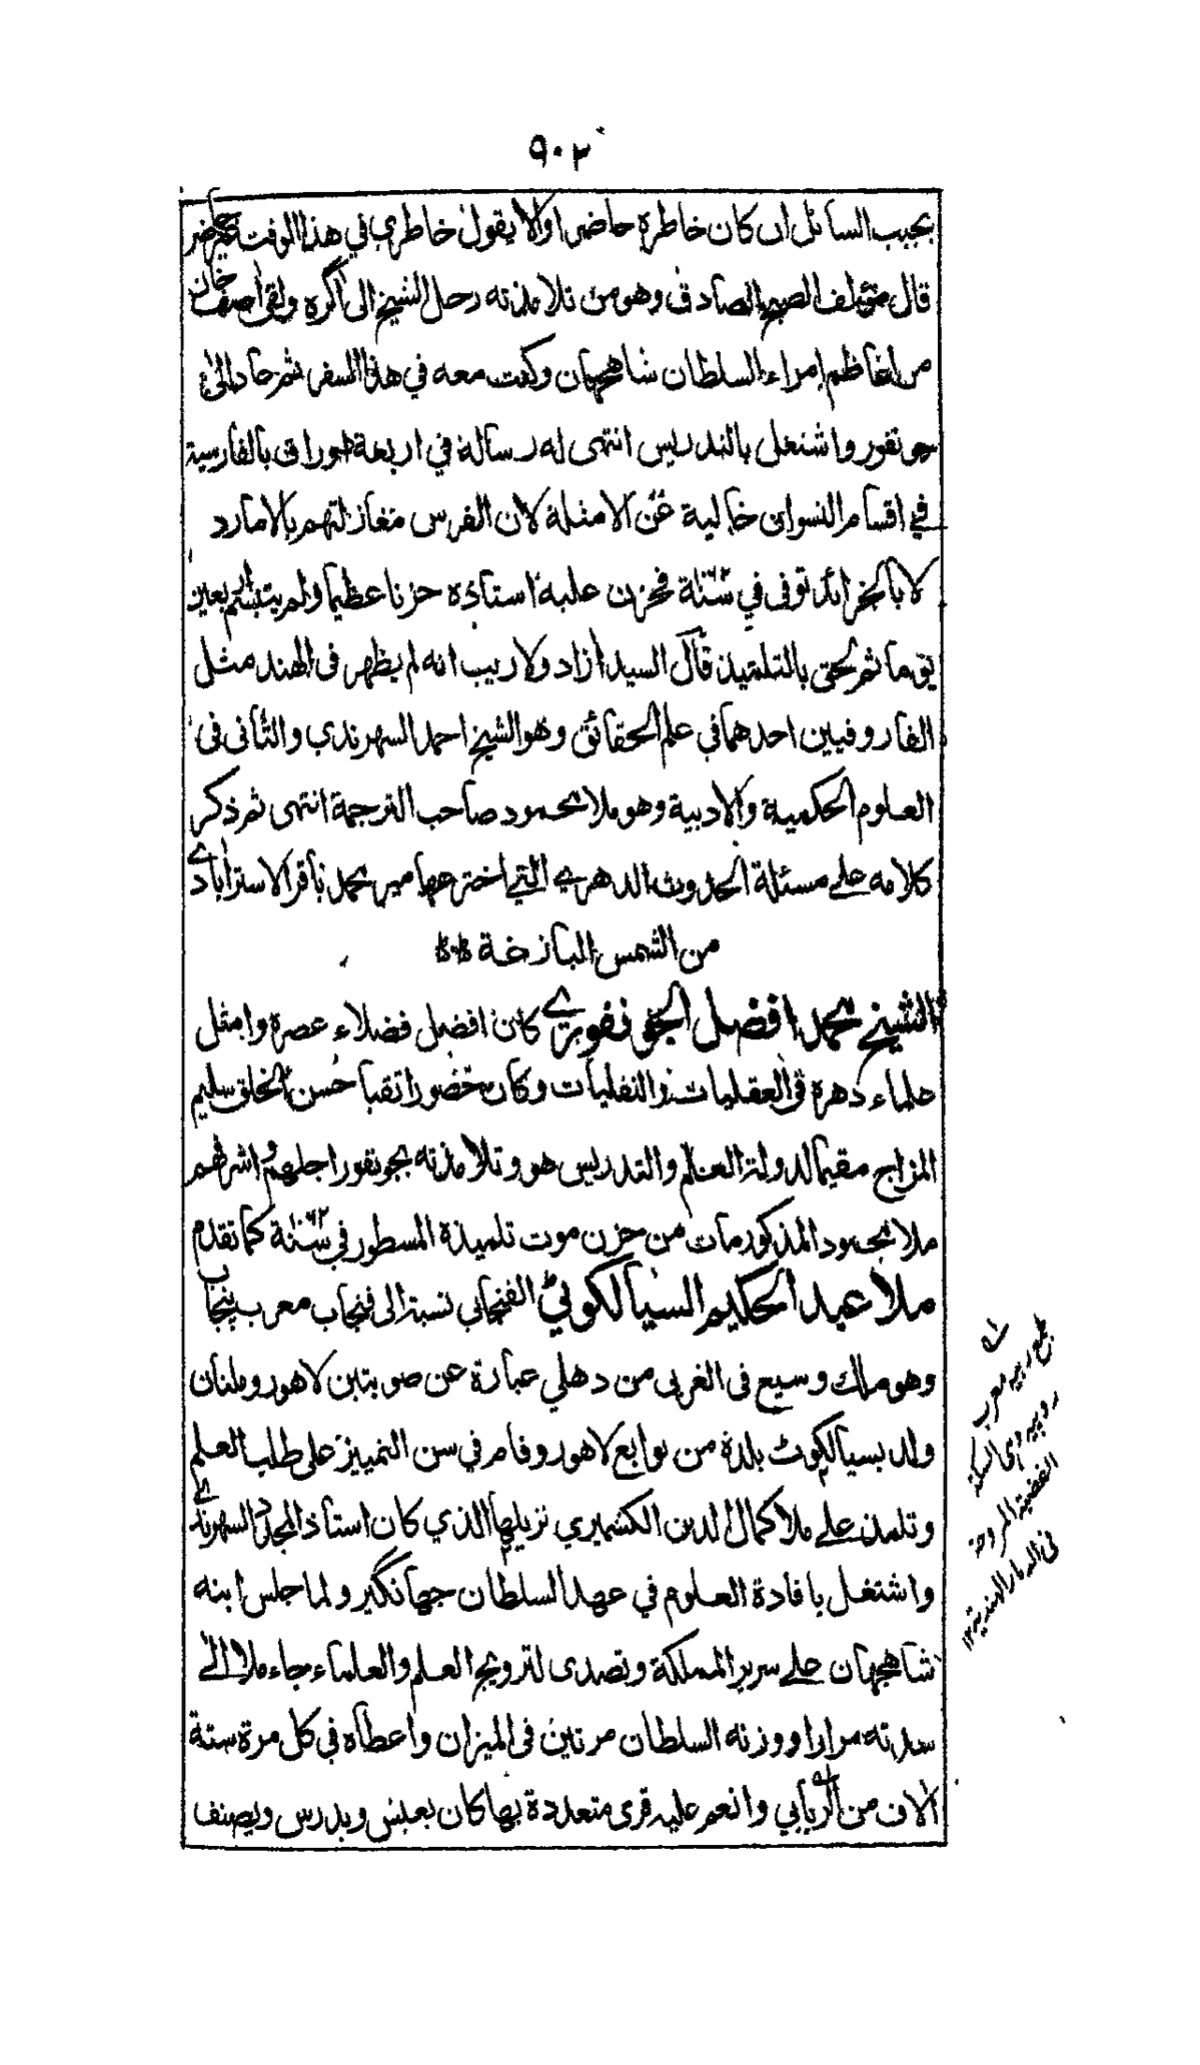 ٩٠٢
يجيب السائل ان كان خاطره حاضرا والا يقول خاطري في هذا الوقت غير حاضر
قال مؤلف الصبح الصادق وهو من تلامذته رحل الشيخ الى اكره ولقى آصف خان
من اعاظم امراء السلطان شاهجهان وكنت معه في هذا السفر ثم عاد الى
جونفور واشتغل بالتدريس انتهى له رسالة في اربعة اوراق بالفارسية
في اقسام النسوان خالية عن الامثلة لان الفرس مغازلتهم بالامارد
لا بالخرائد توفى في سنة فحزن عليه استاذه حزنا عظيما ولم يتبسم اربعين
يوما ثم لحق بالتلميذ قال السيد آزاد ولاريب انه لم يظهر فى الهند مثل
الفاروقيين احدهما في علم الحقائق وهو الشيخ احمد السهرندي والثانى فى
العلوم الحكمية والادبية وهو ملا محمود صاحب الترجمة انتهى ثم ذكر
كلامه على مسئلة الحدوث الدهري التي اخترعها مير محمد باقر الاسترآبادي
من الشمس البازغة
الشيخ محمد افضل الجونفوري كان افضل فضلاء عصره وامثل
علماء دهره فى العقليات والنقليات وكان حصورا تقيا حسن الخلق سليم
المزاج مقيما لدولة العلم والتدريس هو وتلامذته بجونفور اجلهم واشرفهم
ملا محمود المذكور مات من حزن موت تلميذه المسطور في سنة ١٠٦٢ كما تقدم
ملا عبد الحكيم السيالكوتي الفنجابي نسبة الى فنجاب معرب پنجاب
وهو ملك وسيع فى الغربى من دهلي عبارة عن صوبتين لاهور وملتان
ولد بسيالكوٹ بلدة من توابع لاهور وقام في سن التمييز على طلب العلم
وتلمذ على ملا كمال الدين الكشميري نزيلها الذي كان استاذ المجدد السهرندي
واشتغل بافادة العلوم في عهد السلطان جهانگير ولما جلس ابنه
شاهجهان على سرير المملكة وتصدى لترويج العلم والعلماء جاء ملا الى
سدته مرارا ووزنه السلطان مرتين فى الميزان واعطاه في كل مرة ستة
آلاف من الربابي وانعم عليه قرى متعددة بها كان يعيش ويدرس ويصنف
جمع ربيه معرب
روبيه وهى السكة
الفضية المروجة
فى الديار الهندية ١٢